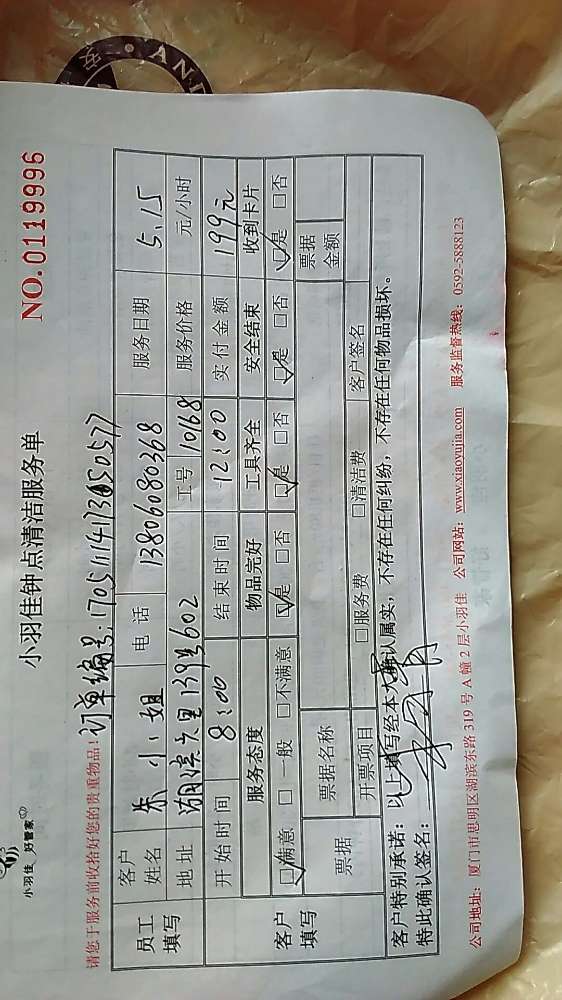 小羽佳 好管家
小羽佳钟点清洁服务单
NO.0119996
请您于服务前收拾好您的贵重物品!
订单编号:
员工填写 客户姓名 朱小姐 电话 13806080368 服务日期 5.15
地址 湖滨六里139号602 工号 10168 服务价格 元/小时
客户填写 开始时间 8:00 结束时间 12:00 实付金额 199元
服务态度 物品完好 工具齐全 安全结束 收到卡片
☑满意 □一般 □不满意 ☑是 □否 ☑是 □否 ☑是 □否 ☑是 □否
票据 票据名称 票据金额
开票项目 □服务费 □清洁费 客户签名
客户特别承诺:以上填写经本人确认属实,不存在任何纠纷,不存在任何物品损坏。
特此确认签名:
公司地址:厦门市思明区湖滨东路319号A幢2层小羽佳 公司网站:www.xiaoyujia.com 服务监督热线:0592-5888123